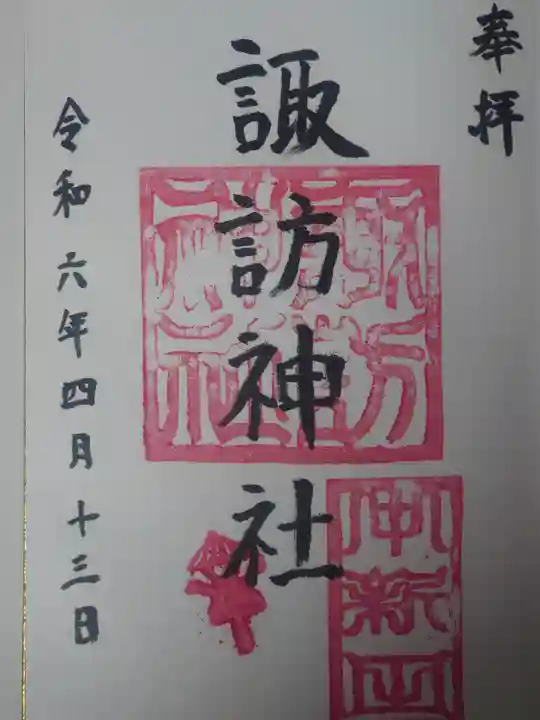 奉拝
諏訪神社
令和六年四月十三日